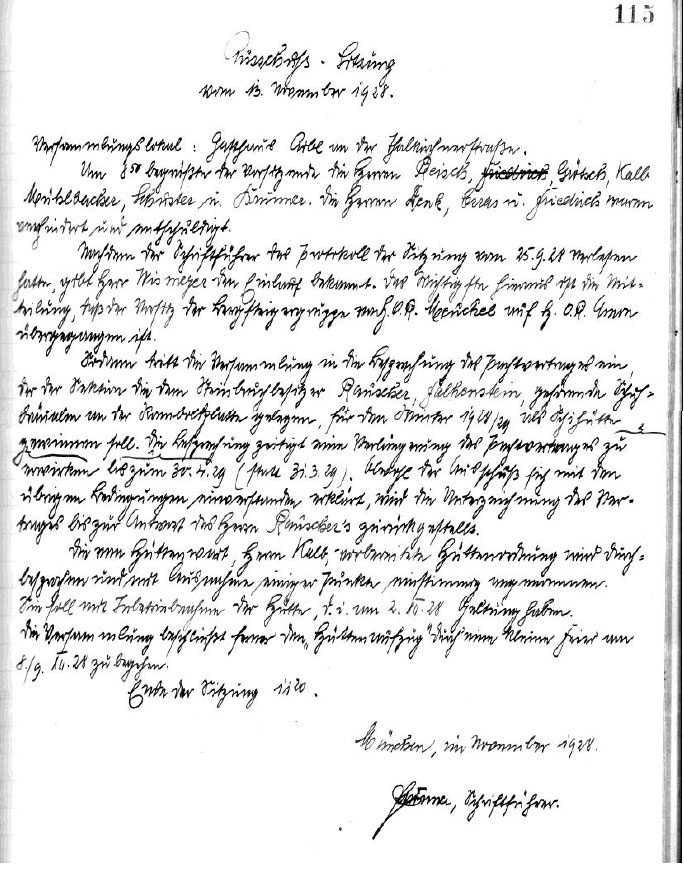 115
Ausschuss-Sitzung
vom 13. November 1928.
Versammlungslokal: Gasthaus Arbl an der Thalkirchnerstraße.
Um 8⁵⁰ begrüßte der Vorsitzende die Herren Friedrich, Götsch, Kalb
Mühlbacher, Schuster u. die Herren Henk, u. Friedrich waren
verhindert und entschuldigt.
Nachdem der Schriftführer das Protokoll der Sitzung vom 25.9.28 verlesen
hatte, gibt Herr Wismeyer den Einlauf bekannt. Das Wichtigste hieraus ist die Mit-
teilung, daß der Vorsitz der Bergsteigergruppe von H. O.R. Meuckel auf H. O.R.
übergegangen ist.
Sodann tritt die Versammlung in die Besprechung des Pachtvertrages ein,
der der Sektion die dem Steinbruchbesitzer Rauscher, Falkenstein, gehörende
an der gelegen, für den Winter 1928/29 als Schihütte
gewinnen soll. Die Besprechung zeitigt eine Verlängerung des Pachtvertrages zu
erwirken bis zum 30.4.29 (statt 31.3.29). Obwohl der Ausschuß sich mit den
übrigen Bedingungen einverstanden erklärt, wird die Unterzeichnung des Ver-
trages bis zur Antwort des Herrn Rauscher's zurückgestellt.
Die vom Hüttenwart, Herrn Kalb, vorbereitete Hüttenordnung wird durch-
besprochen und mit Ausnahme einiger Punkte einstimmig angenommen.
Sie soll mit Inbetriebnahme der Hütte, d.i. am 2. XII. 28 Geltung haben.
Die Versammlung beschließt ferner den „Hüttenaufzug" durch eine kleine Feier am
8./9. XII. 28 zu begehen.
Ende der Sitzung 11²⁰.
München, im November 1928.
Schriftführer.